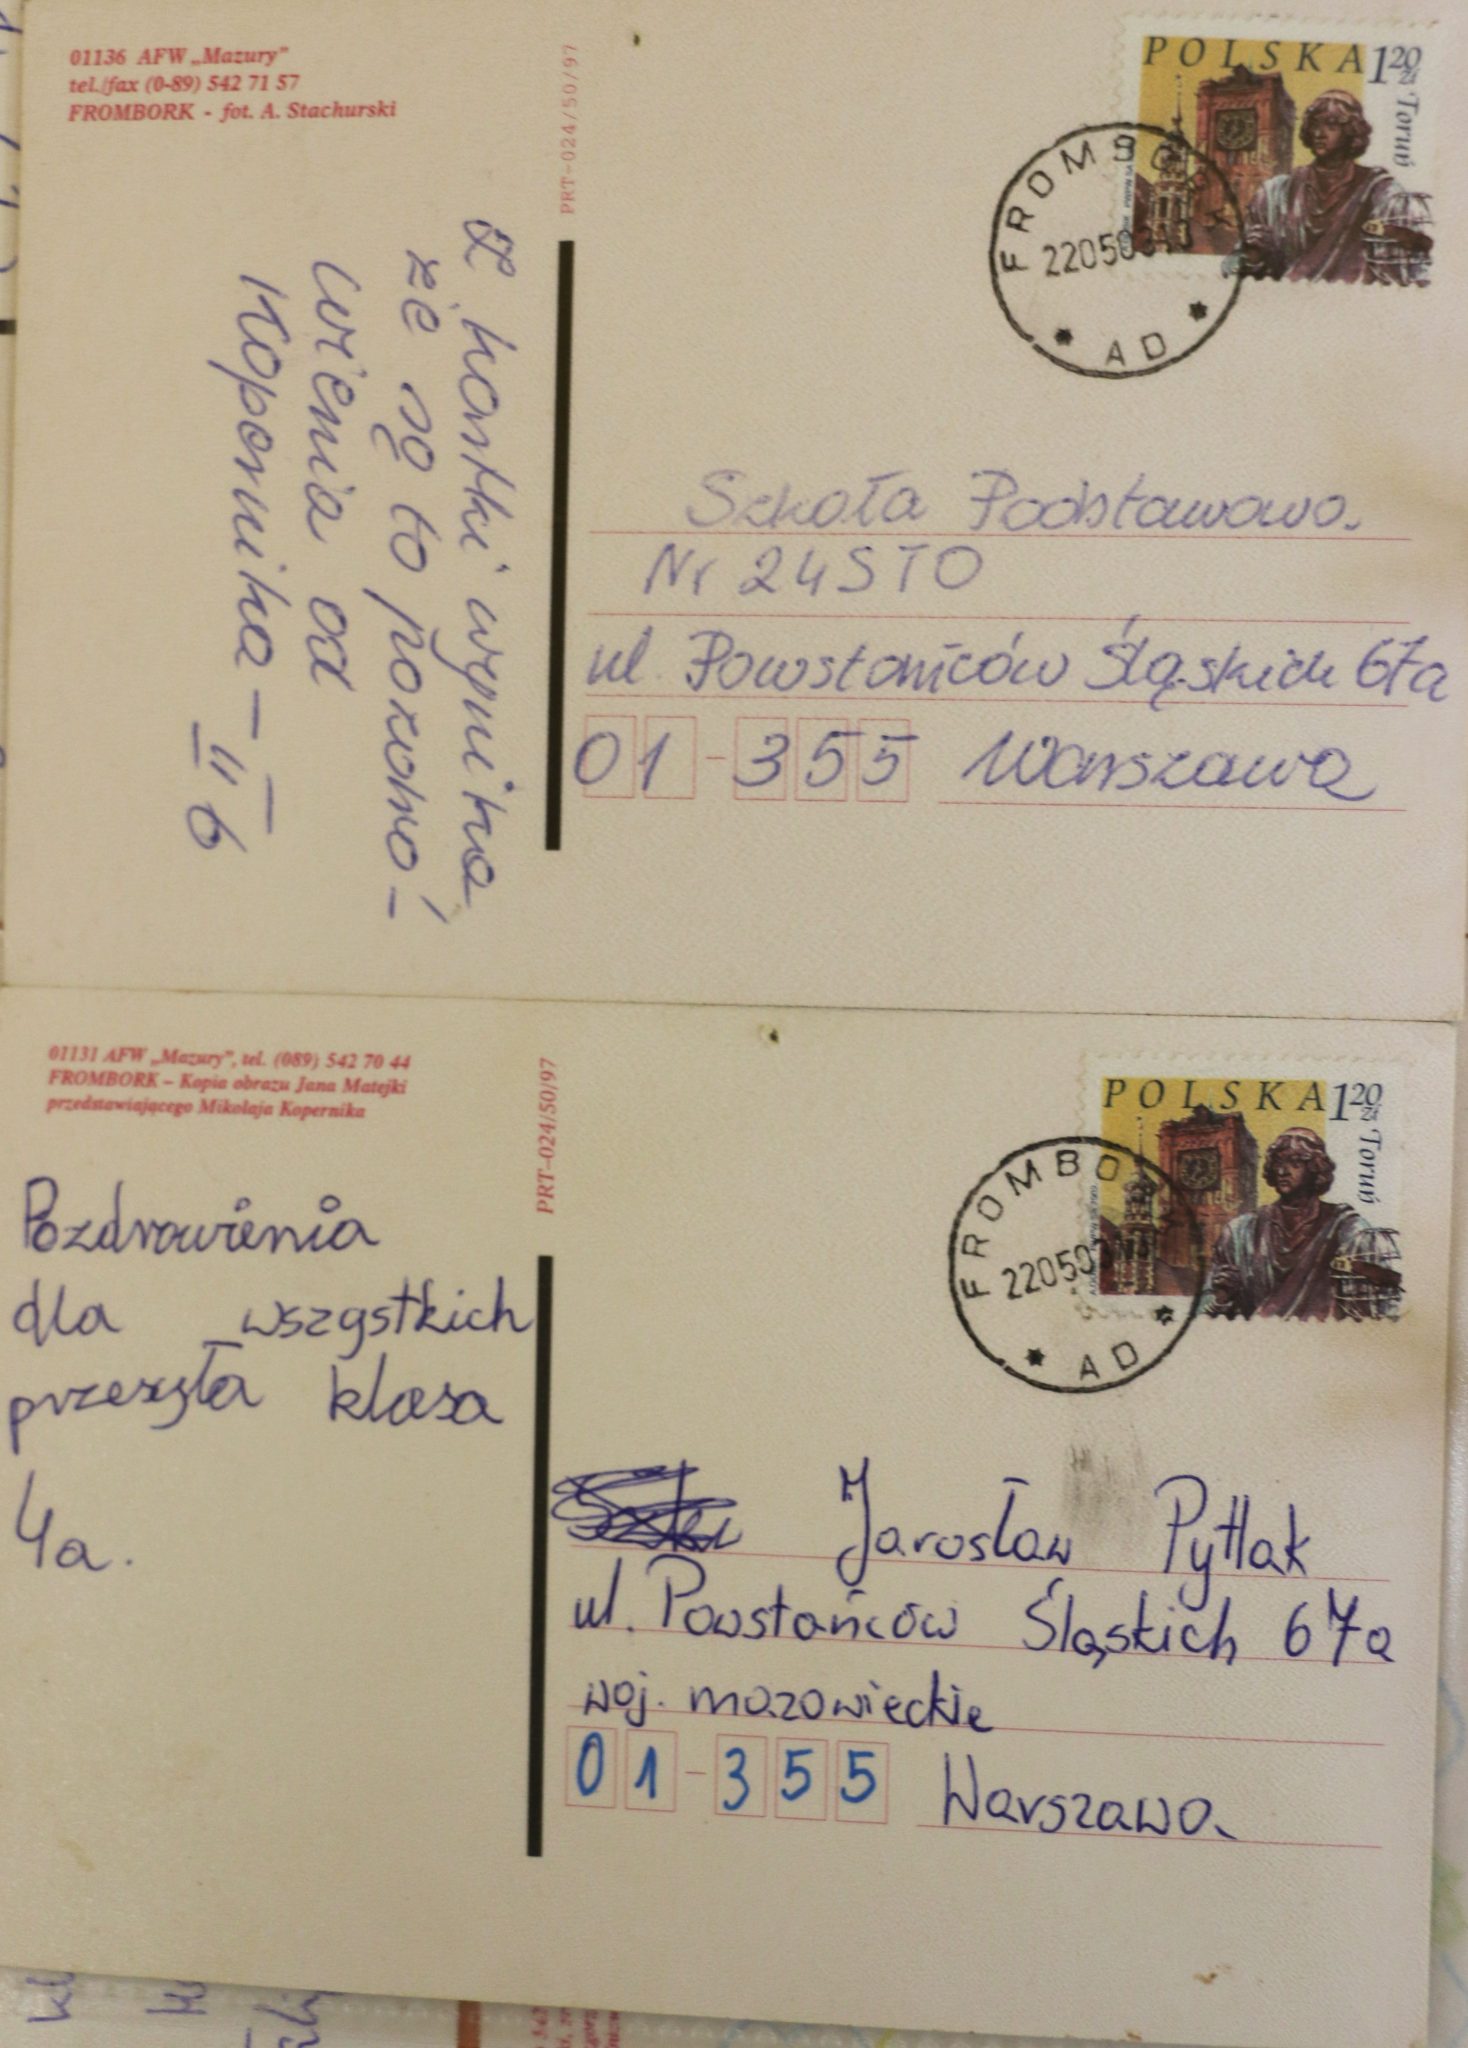 01136 AFW „Mazury”
tel./fax (0-89) 542 71 57
FROMBORK - fot. A. Stachurski
PRT-024/50/97
POLSKA 1 20 zł
Toruń
FROMBORK
220503
AD
Z kartki wynika
że są to pozdro-
wienia od
Kopernika –
Szkoła Podstawowa
Nr 24 STO
ul. Powstańców Śląskich 67a
01-355 Warszawa
01131 AFW „Mazury”, tel. (089) 542 70 44
FROMBORK – Kopia obrazu Jana Matejki
przedstawiającego Mikołaja Kopernika
PRT-024/50/97
POLSKA 1 20 zł
Toruń
FROMBO
220503
AD
Pozdrowienia
dla wszystkich
przesyła klasa
4a.
Jarosław Pytlak
ul. Powstańców Śląskich 67a
woj. mazowieckie
01-355 Warszawa